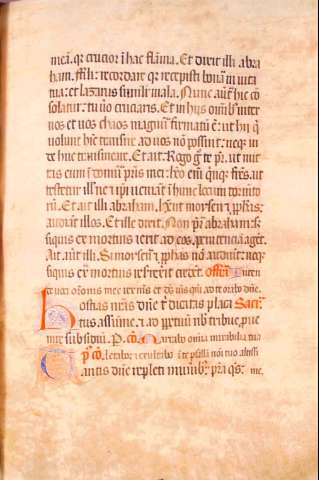 meā. qr crucior ī hac flāma. Et dixit illi abra
ham. fili: recordare qr recepisti bona in uita
tua: et lazarus similit mala. Nunc aut̄ hic cō
solatur: tu uo cruciaris. Et in hijs omib; inter
nos et uos chaos magnū firmatū ē: ut hij q̄
uolunt hinc transire ad uos nō possint: neq; in
de huc transmeare. Et ait: Rogo g̊ te pr̄. ut mit
tas eum ī domū pris mei: h̄eo eni qnq; frēs. ut
testetur ill̄ ne ⁊ ipi ueniāt ī hunc locum tormēto
rū. Et ait illi abraham. h̄ent moysen ⁊ ꝓphās:
audiāt illos. Et ille dixit. Non pr̄ abraham: s;
siquis ex mortuis ierit ad eos, penitenciā aget.
Ait aut̄ illi. Si moysen ⁊ ꝓphās nō audiūt: neq;
siquis ex mortuis resurrexit credēt. offert̄
hostias nr̄as dn̄e t̄ dicatas placat̄ Sacr̄
tus assume. ⁊ ad ꝑpetuū nb̄ tribue, ꝓue
nire subsidiū. P. cō Narrabo omīa mirabilia tua
p̄ cō. letabor ⁊ exultabo ī te psallā nōi tuo altissi
antis dn̄e repleti munib; pr̄a q̄s: me.